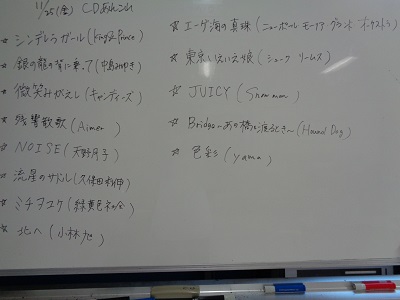 11/25(金) CDあれこれ
☆ シンデレラガール(King & Prince)
☆ 銀の龍の背に乗って(中島みゆき)
☆ 微笑みがえし(キャンディーズ)
☆ 残響散歌(Aimer)
☆ NOISE(天野月子)
☆ 流星のサドル(久保田利伸)
☆ ミチヲユケ(緑黄色社会)
☆ 北へ(小林旭)
☆ エーゲ海の真珠(ニューポールモーリア グランド オーケストラ)
☆ 東京いえいえ娘(シューク リームズ)
☆ JUICY(Snow man)
☆ Bridge〜あの橋を渡るとき〜(Hound Dog)
☆ 色彩(yama)